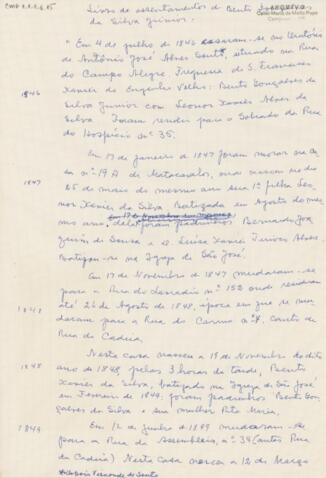 Livro de assentamentos de Bento
da Silva Junior.
"Em 4 de julho de 1846 casaram-se no Oratório
de Antônio José Alves Souto, situado em Rua
do Campo Alegre, Freguesia de S. Francisco
1846 Xavier do Engenho Velho: Bento Gonçalves da
Silva Junior com Leonor Xavier Alves da
Silva. Foram residir para o Sobrado da Rua
do Hospício nº 35.
Em 17 de janeiro de 1847 foram morar na
casa nº 19 A de Matacavalos, onde nasceu no dia
1847 25 de maio do mesmo ano sua 1ª filha Leo-
nor Xavier da Silva. Batizada em Agosto do mes-
mo ano, dela foram padrinhos Bernardo Joa-
quim de Sousa e D. Luisa Xavier Alves.
Batizou-se na Igreja de São José.
Em 17 de Novembro de 1847 mudaram-se
para a Rua do Lavradio nº 152 onde residiram
até 26 de Agosto de 1848, época em que se mu-
daram para a Rua do Carmo nº 4, canto de
Rua da Cadeia.
Nesta casa nasceu a 19 de Novembro do dito
1848 ano de 1848, pelas 3 horas da tarde, Bento
Xavier da Silva, batizado na Igreja de São José
em Fevereiro de 1849, foram padrinhos Bento Gon-
çalves da Silva e sua mulher Rita Maria.
1849 Em 12 de Junho de 1849 mudaram-se
para a Rua da Assembleia, nº 34 (antes Rua
da Cadeia). Nesta casa nasceu a 12 de Março